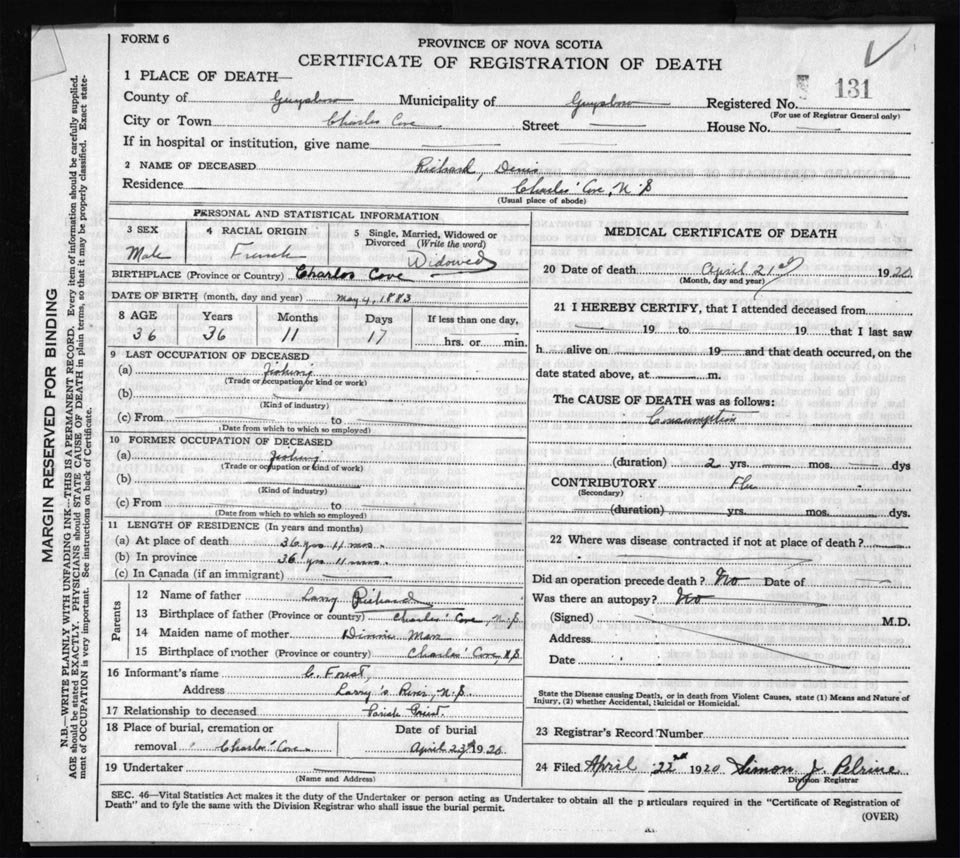 FORM 6
PROVINCE OF NOVA SCOTIA
CERTIFICATE OF REGISTRATION OF DEATH
131
1 PLACE OF DEATH—
County of Guysboro Municipality of Guysboro Registered No.
(For use of Registrar General only)
City or Town Charlos Cove Street — House No. —
If in hospital or institution, give name
2 NAME OF DECEASED Richard, Denis
Residence Charlos' Cove, N.S
(Usual place of abode)
MARGIN RESERVED FOR BINDING
N.B.—WRITE PLAINLY WITH UNFADING INK—THIS IS A PERMANENT RECORD. Every item of information should be carefully supplied.
AGE should be stated EXACTLY. PHYSICIANS should STATE CAUSE OF DEATH in plain terms, so that it may be properly classified. Exact state-
ment of OCCUPATION is very important. See instructions on back of Certificate.
PERSONAL AND STATISTICAL INFORMATION
3 SEX
Male
4 RACIAL ORIGIN
French
5 Single, Married, Widowed or
Divorced (Write the word)
Widowed
BIRTHPLACE (Province or Country) Charlos Cove
DATE OF BIRTH (month, day and year) May 4, 1883
8 AGE Years Months Days If less than one day,
36 36 11 17 hrs. or min.
9 LAST OCCUPATION OF DECEASED
(a) Fishing
(Trade or occupation or kind or work)
(b)
(Kind of industry)
(c) From to
(Date from which to which so employed)
10 FORMER OCCUPATION OF DECEASED
(a) Fishing
(Trade or occupation or kind of work)
(b)
(Kind of industry)
(c) From to
(Date from which to which so employed)
11 LENGTH OF RESIDENCE (In years and months)
(a) At place of death 36 yrs 11 mos.
(b) In province 36 yrs 11 mos.
(c) In Canada (if an immigrant)
Parents
12 Name of father Larry Richard
13 Birthplace of father (Province or country) Charlos' Cove, N.S
14 Maiden name of mother
15 Birthplace of mother (Province or country) Charlos' Cove, N.S
16 Informant's name C. Forest,
Address Larry's River, N.S
17 Relationship to deceased Parish Priest.
18 Place of burial, cremation or
removal Charlos' Cove
Date of burial
April 23rd 1920
19 Undertaker
(Name and Address)
MEDICAL CERTIFICATE OF DEATH
20 Date of death April 21st 1920
(Month, day and year)
21 I HEREBY CERTIFY, that I attended deceased from
19 to 19 that I last saw
h alive on 19 and that death occurred, on the
date stated above, at m.
The CAUSE OF DEATH was as follows:
Consumption
(duration) 2 yrs. — mos. — dys
CONTRIBUTORY Flu
(Secondary)
(duration) yrs. mos. dys.
22 Where was disease contracted if not at place of death?
Did an operation precede death? No Date of —
Was there an autopsy? No
(Signed) M.D.
Address
Date
State the Disease causing Death, or in death from Violent Causes, state (1) Means and Nature of
Injury, (2) whether Accidental, Suicidal or Homicidal.
23 Registrar's Record Number
24 Filed April 22nd 1920 Simon J. Pelrine
Division Registrar
SEC. 46—Vital Statistics Act makes it the duty of the Undertaker or person acting as Undertaker to obtain all the particulars required in the "Certificate of Registration of
Death" and to fyle the same with the Division Registrar who shall issue the burial permit.
(OVER)